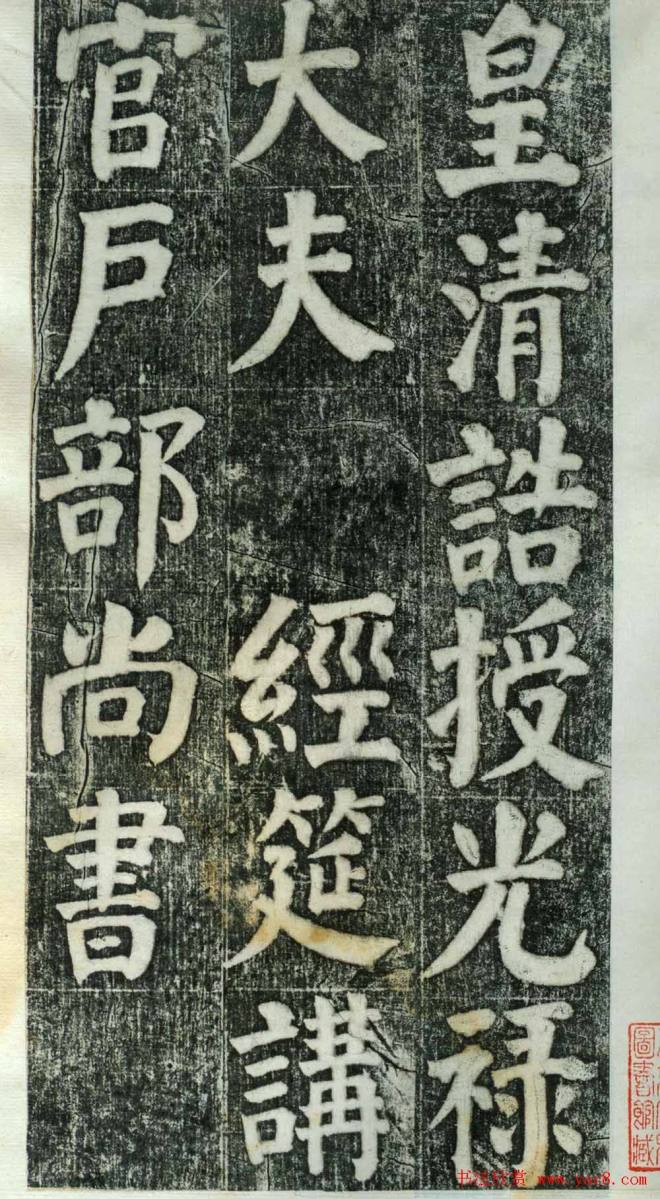 皇清誥授光禄
大夫　經筵講
官户部尚書
書法欣賞 www.yac8.com